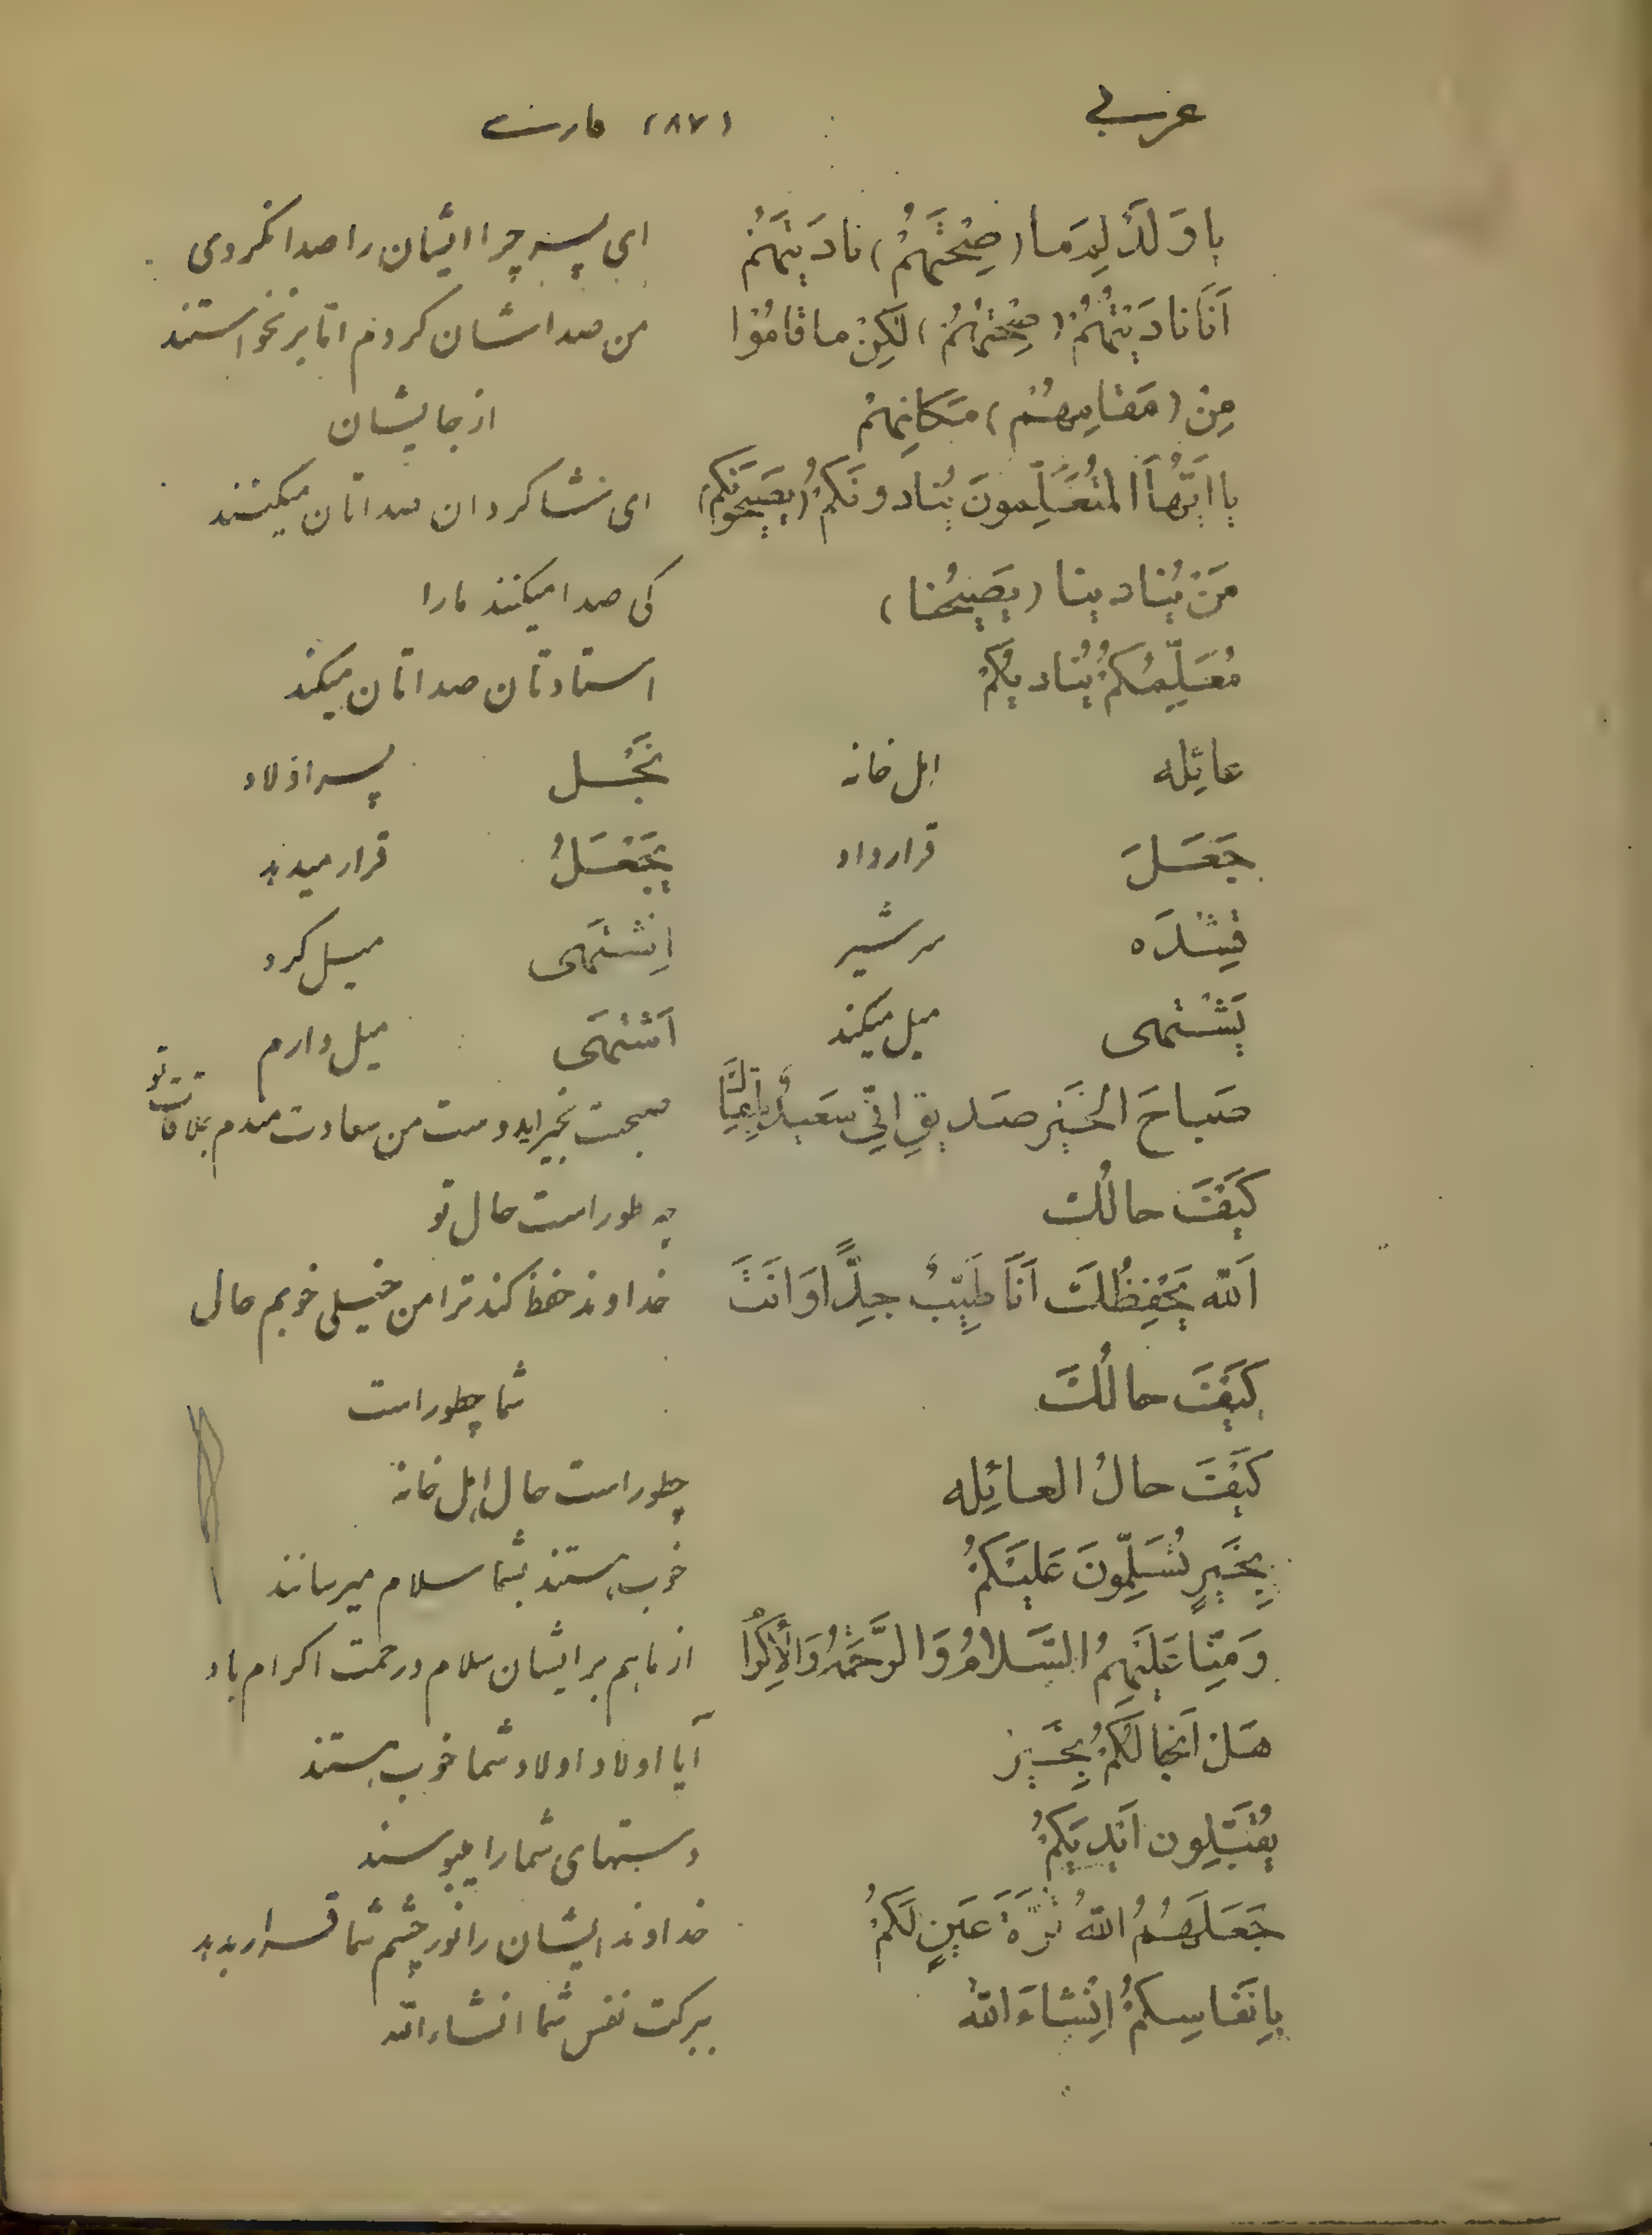 عربی (۸۷) فارسی
یا وَلَدُ لِمَ ما (صِحْتَهُمْ) نادَیْتَهُمْ ای پسر چرا ایشان را صدا نکردی
اَنَا نادَیْتُهُمْ (صِحْتُهُمْ) لکِنْ ما قامُوْا من صداشان کردم اما برنخواستند
مِنْ (مَقامِهِمْ) مَکانِهِمْ از جایشان
یا اَیُّهَا المُتَعَلِّمونَ یُنادونَکُمْ (یَصیحُونَکُمْ) ای شاکردان صداتان میکنند
مَنْ یُنادینا (یَصیحُنا) کی صدا میکنند مارا
مُعَلِّمُکُمْ یُنادیکُمْ استادتان صداتان میکند
عائِله اهل خانه نَجْل پسر اولاد
جَعَلَ قرار داد یَجْعَلُ قرار میدهد
قِشْدَه سرشیر اِشْتَهی میل کرد
یَشْتَهی میل میکند اَشْتَهی میل دارم
صَباحَ الخَیْر صَدیقی اِنّی سَعیدٌ صبحت بخیر اید وست من سعادت مندم بملاقات تو
کَیْفَ حالُكَ چه طور است حال تو
اَللّه یَحْفِظُكَ اَنَا طَیِّبٌ جِدًّا وَ انَتَ خداوند حفظ کند ترا من خیلی خوبم حال
کَیْفَ حالُكَ شما چطور است
کَیْفَ حالُ العائِله چطور است حال اهل خانه
بِخَیرٍ یُسَلِّمونَ عَلَیْکُمْ خوب هستند بشما سلام میرسانند
وَ مِنّا عَلَیهِمُ السَّلامُ وَ الرَّحْمَةُ وَ الْاِکْرامُ از ما هم بر ایشان سلام و رحمت اکرام باد
هَلْ اَنْجالُکُمْ بِخَیْر آیا اولاد اولاد شما خوب هستند
یُقَبِّلون اَیدیَکُمْ دستهای شما را میبوسند
جَعَلَهُمُ اللّهُ قُرَّةَ عَینٍ لَکُمْ خداوند ایشان را نور چشم شما قرار بدهد
بِانَفاسِکُمْ اِنْشاءَ اللّه ببرکت نفس شما انشاء الله